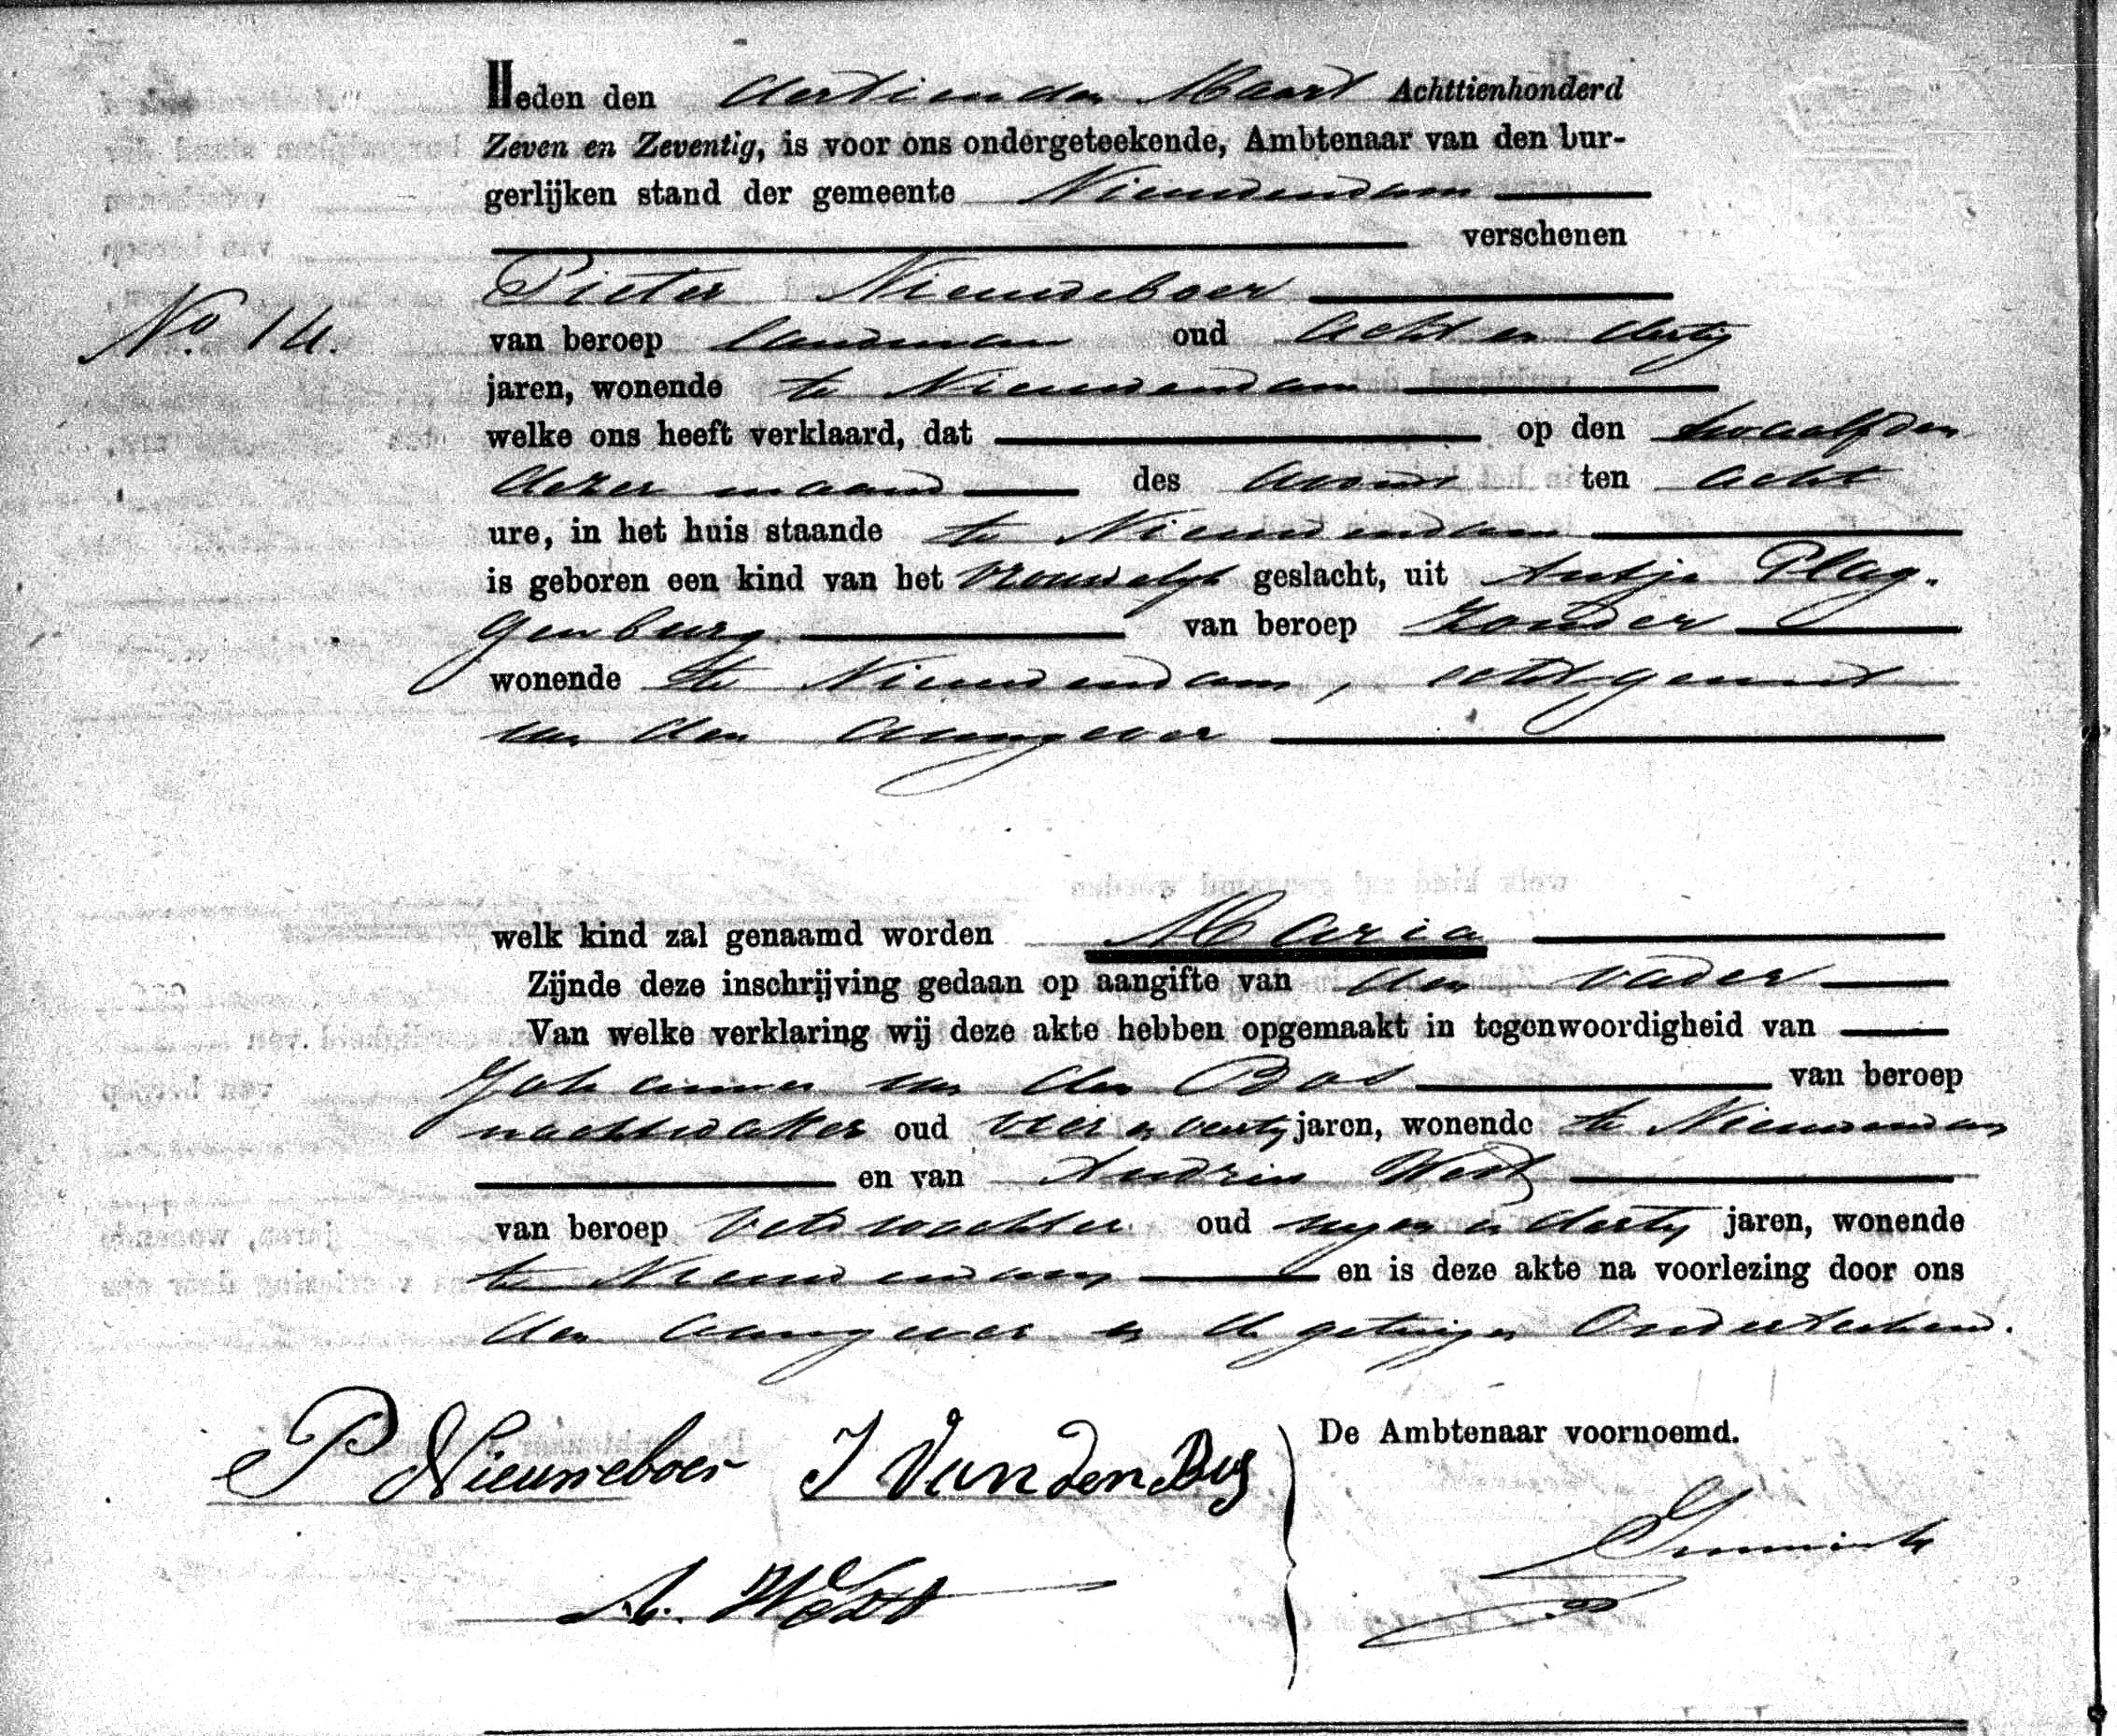 Heden den dertienden Maart Achttienhonderd
Zeven en Zeventig, is voor ons ondergeteekende, Ambtenaar van den bur-
gerlijken stand der gemeente Nieuwendam
verschenen
Pieter Nieuweboer
No. 14.
van beroep landman oud acht en dertig
jaren, wonende te Nieuwendam
welke ons heeft verklaard, dat op den twaalfden
dezer maand des avonds ten acht
ure, in het huis staande te Nieuwendam
is geboren een kind van het vrouwelijk geslacht, uit Antje Plag-
genburg van beroep zonder
wonende te Nieuwendam, echtgenoot
van den aangever
welk kind zal genaamd worden Maria
Zijnde deze inschrijving gedaan op aangifte van den vader
Van welke verklaring wij deze akte hebben opgemaakt in tegenwoordigheid van
Johannes van den Bos van beroep
nachtwaker oud vier en veertig jaren, wonende te Nieuwendam
en van Andries West
van beroep veldwachter oud negen en dertig jaren, wonende
te Nieuwendam en is deze akte na voorlezing door ons
den aangever en de getuigen Onderteekend.
P Nieuweboer J Van den Bos
De Ambtenaar voornoemd.
A. West